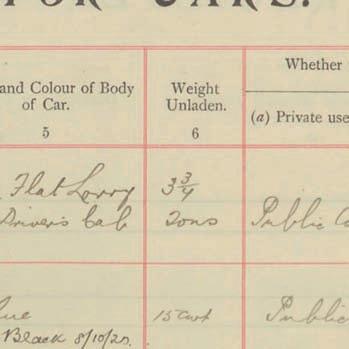 FOR CARS.
and Colour of Body
of Car.
5
Weight
Unladen.
6
Whether
(a) Private use
Flat Lorry
Drivers Cab
3 3/4
Tons
Public
15 cwt
Public
Black 8/10/25.